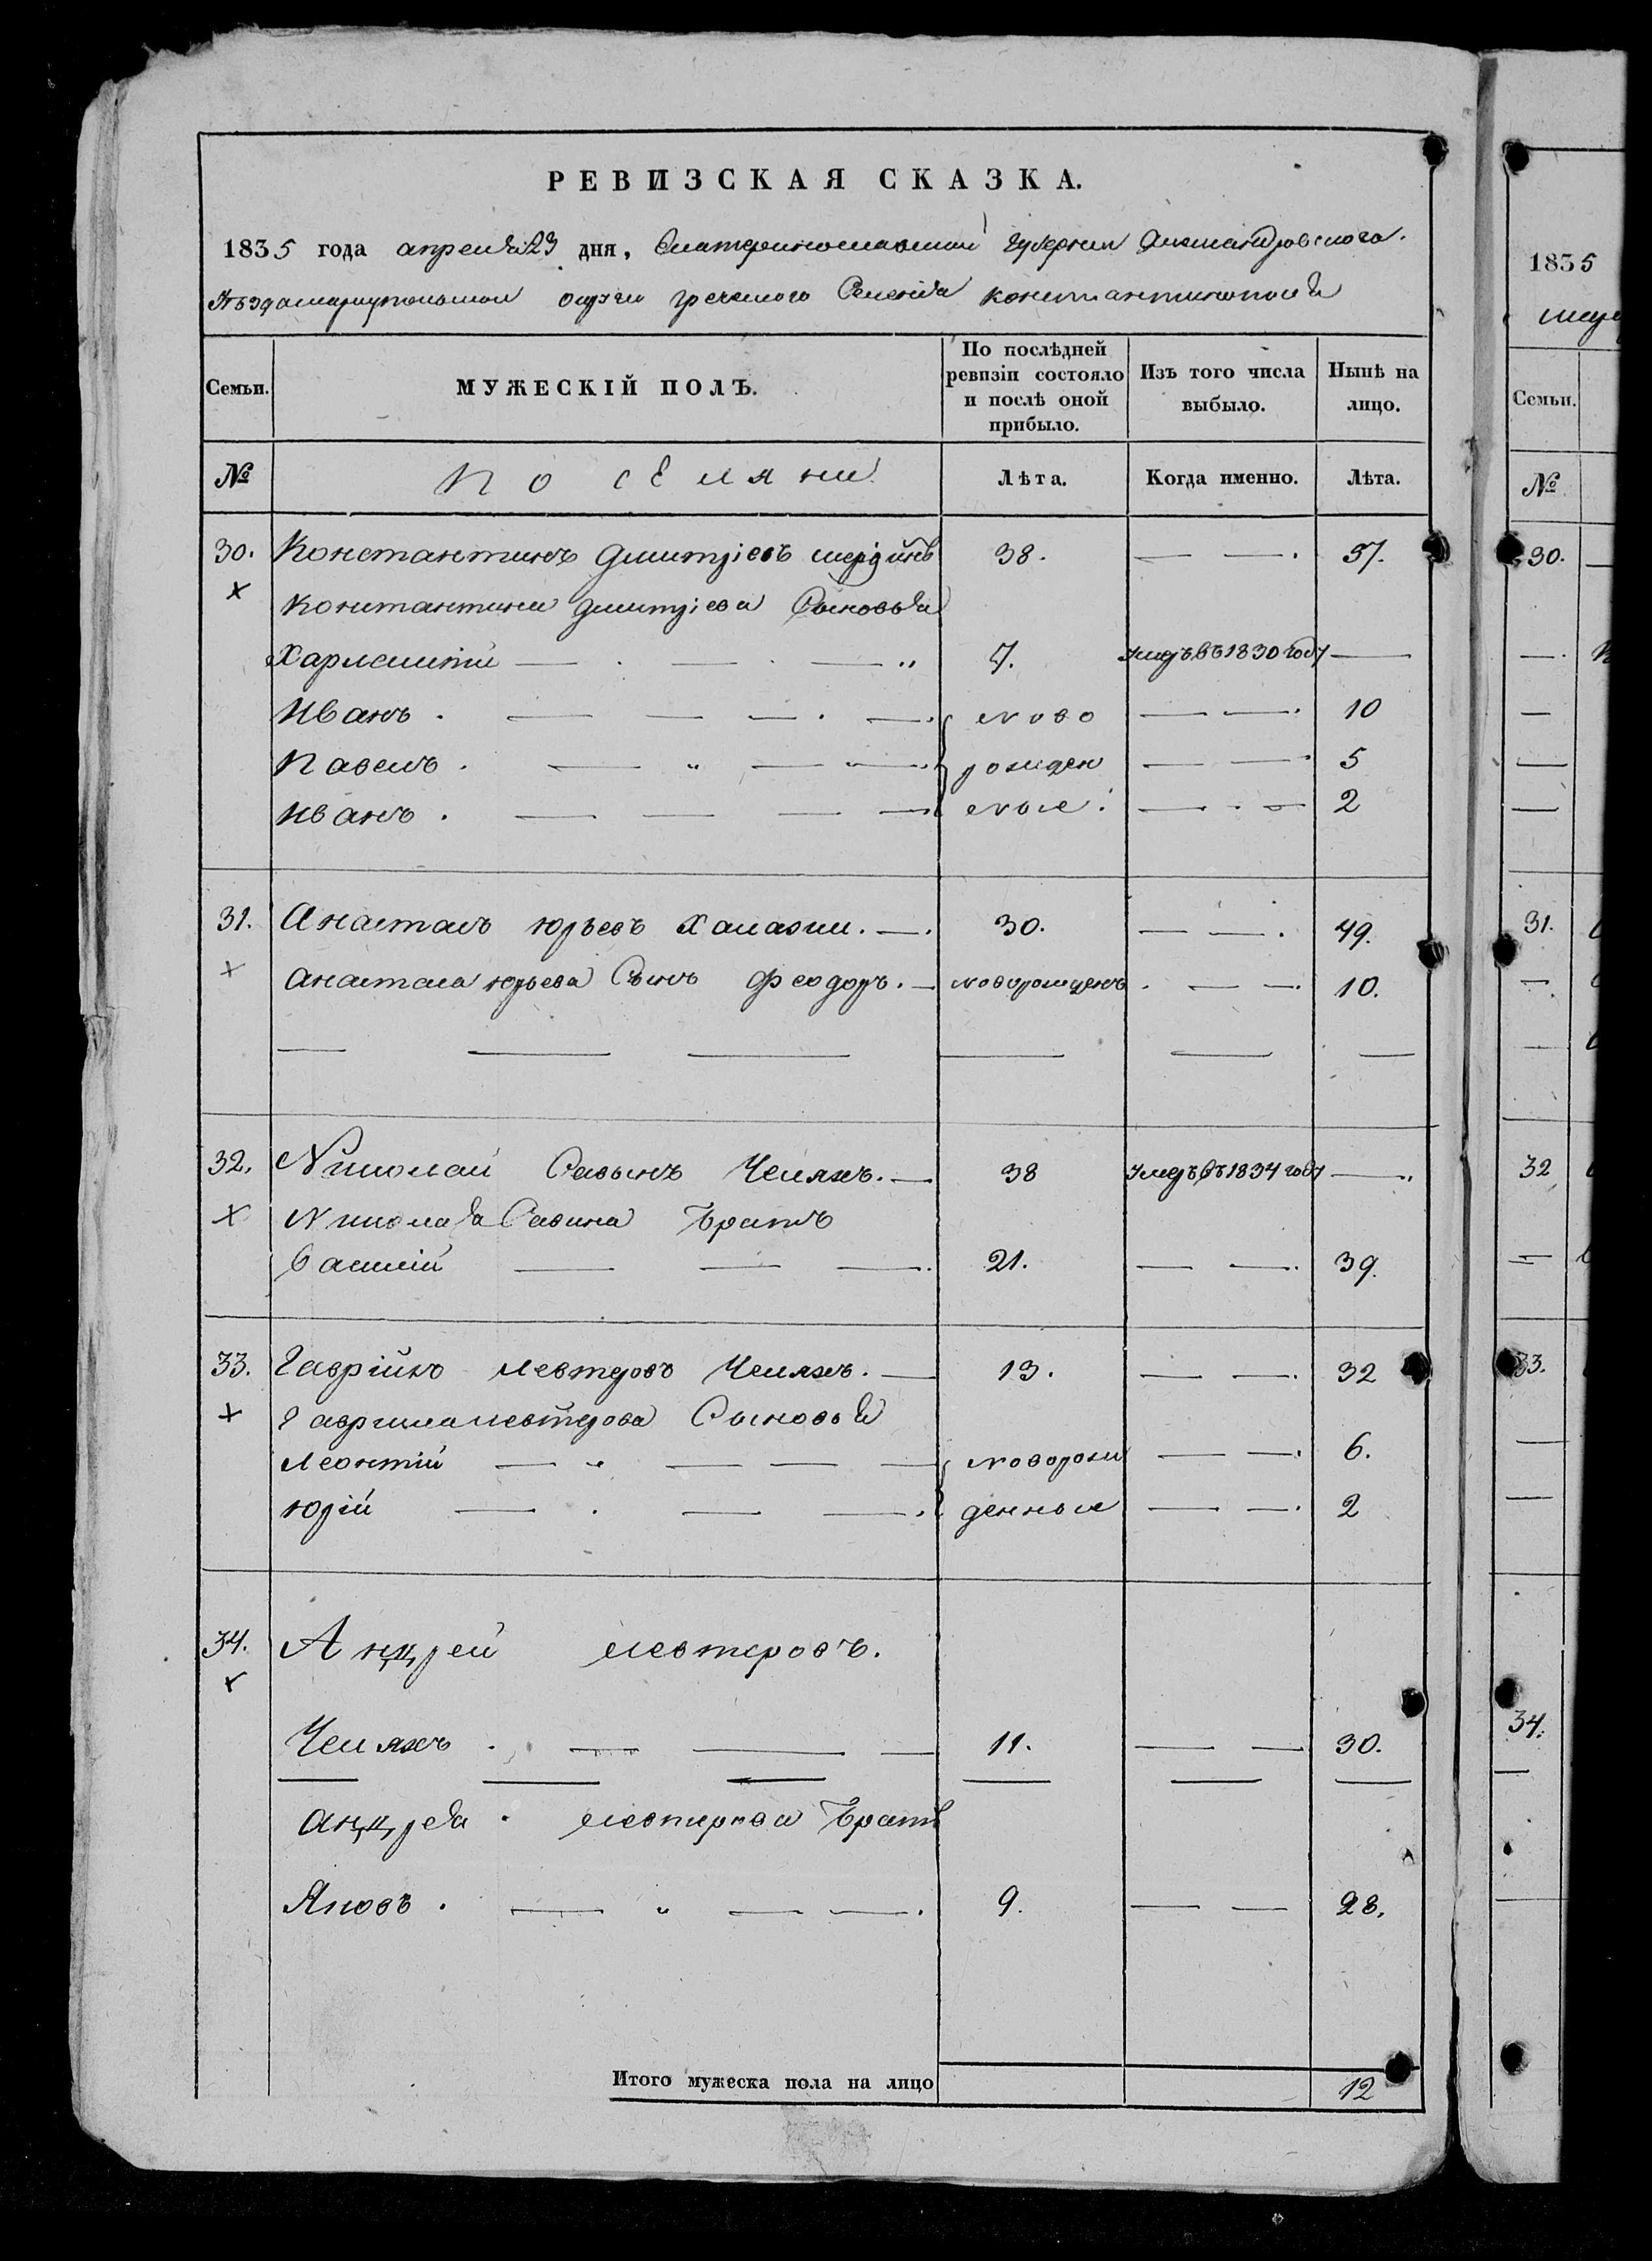 РЕВИЗСКАЯ СКАЗКА.
1835 года апреля 23 дня, Екатеринославской губернии Александровского
уѣзда мариупольской округи греческого Селенія константинополя
Семьи. МУЖЕСКІЙ ПОЛЪ. По послѣдней ревизіи состояло и послѣ оной прибыло. Изъ того числа выбыло. Нынѣ на лицо.
№ поселяни Лѣта. Когда именно. Лѣта.
30. Константинъ дмитріевъ 38. — —. 57.
Константина дмитріева Сыновья
Харлампій — . — . — „ 7. умеръ въ 1830 году —
Иванъ . — — — . — ново — —. 10
Павелъ . — „ — — рожден — — 5
Иванъ . — — — — ные . — . — 2
31. Анастасъ юрьевъ Халаджи. —. 30. — —. 49.
анастаса юрьева Сынъ феодоръ. — новорожденъ . — —. 10.
32. Николай Савинъ Челяхъ. — 38 умеръ въ 1834 году —
Николая Савина Братъ
Василій — — —. 21. — —. 39.
33. Гавріилъ левтеровъ Челяхъ. — 13. — —. 32
Гавриила левтерова Сыновья
Леонтій — — — — новорож — —. 6.
юрій — . — —. денные — —. 2
34. Андрей левтеровъ.
Челяхъ . — — — 11. — — 30.
андрея левтерова Братъ
Яковъ . — „ — —. 9. — — 28.
Итого мужеска пола на лицо 12
1835
Семьи.
№
30.
31.
32
33.
34.